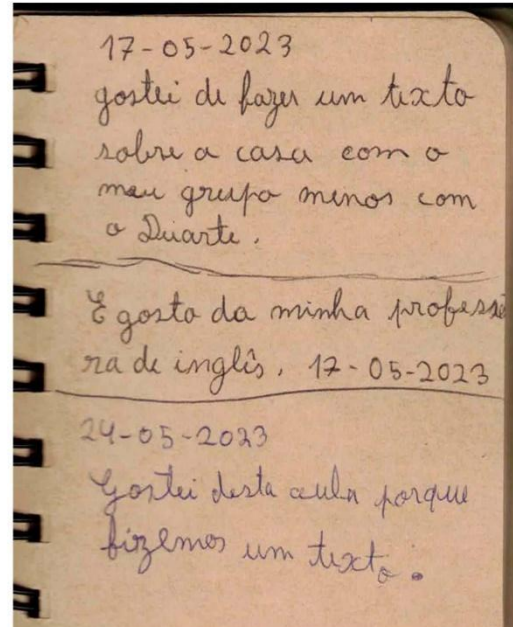 17-05-2023
gostei de fazer um texto
sobre a casa com o
meu grupo menos com
o Duarte.
E gosto da minha professo
ra de inglês. 17-05-2023
24-05-2023
Gostei desta aula porque
fizemos um texto.